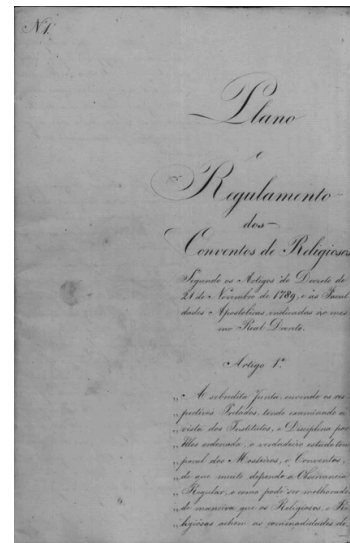 N 1.
Plano
e
Regulamento
dos
Conventos de Religiosos
Segundo os Artigos do Decreto de
21 de Novembro de 1789, e as Facul
dades Apostolicas, indicadas no mes
mo Real Decreto.
Artigo 1º
„ A sobredita Junta, ouvindo os res
„ pectivos Prelados, tendo examinado á
„ vista dos Institutos, e Disciplina por
„ Elles ordenada, o verdadeiro estado tem
„ poral dos Mosteiros, e Conventos,
„ de que muito depende a Observancia
„ Regular, e como pode ser melhorado,
„ de maneira que os Religiosos, e Re
„ ligiosas achem as commodidades de